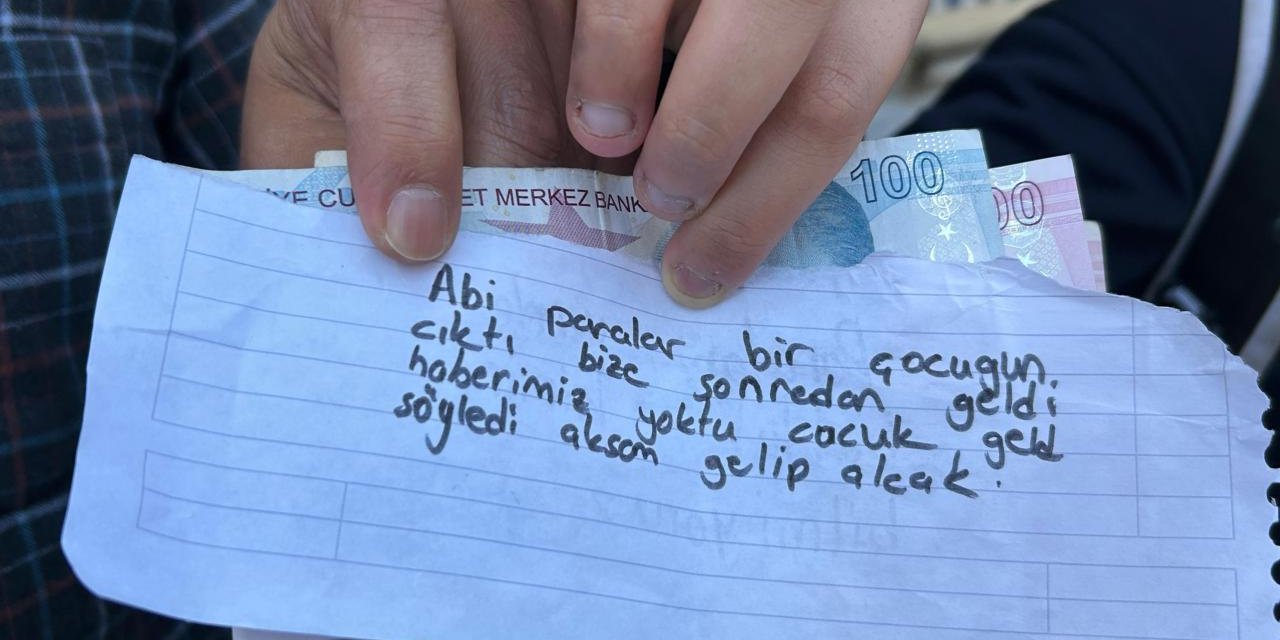 YE CU
ET MERKEZ BANK
100
00
Abi paralar bir çocugun.
cıktı bize sonredan geldi
haberimiz yoktu cocuk geld
söyledi aksam gelip alcak.